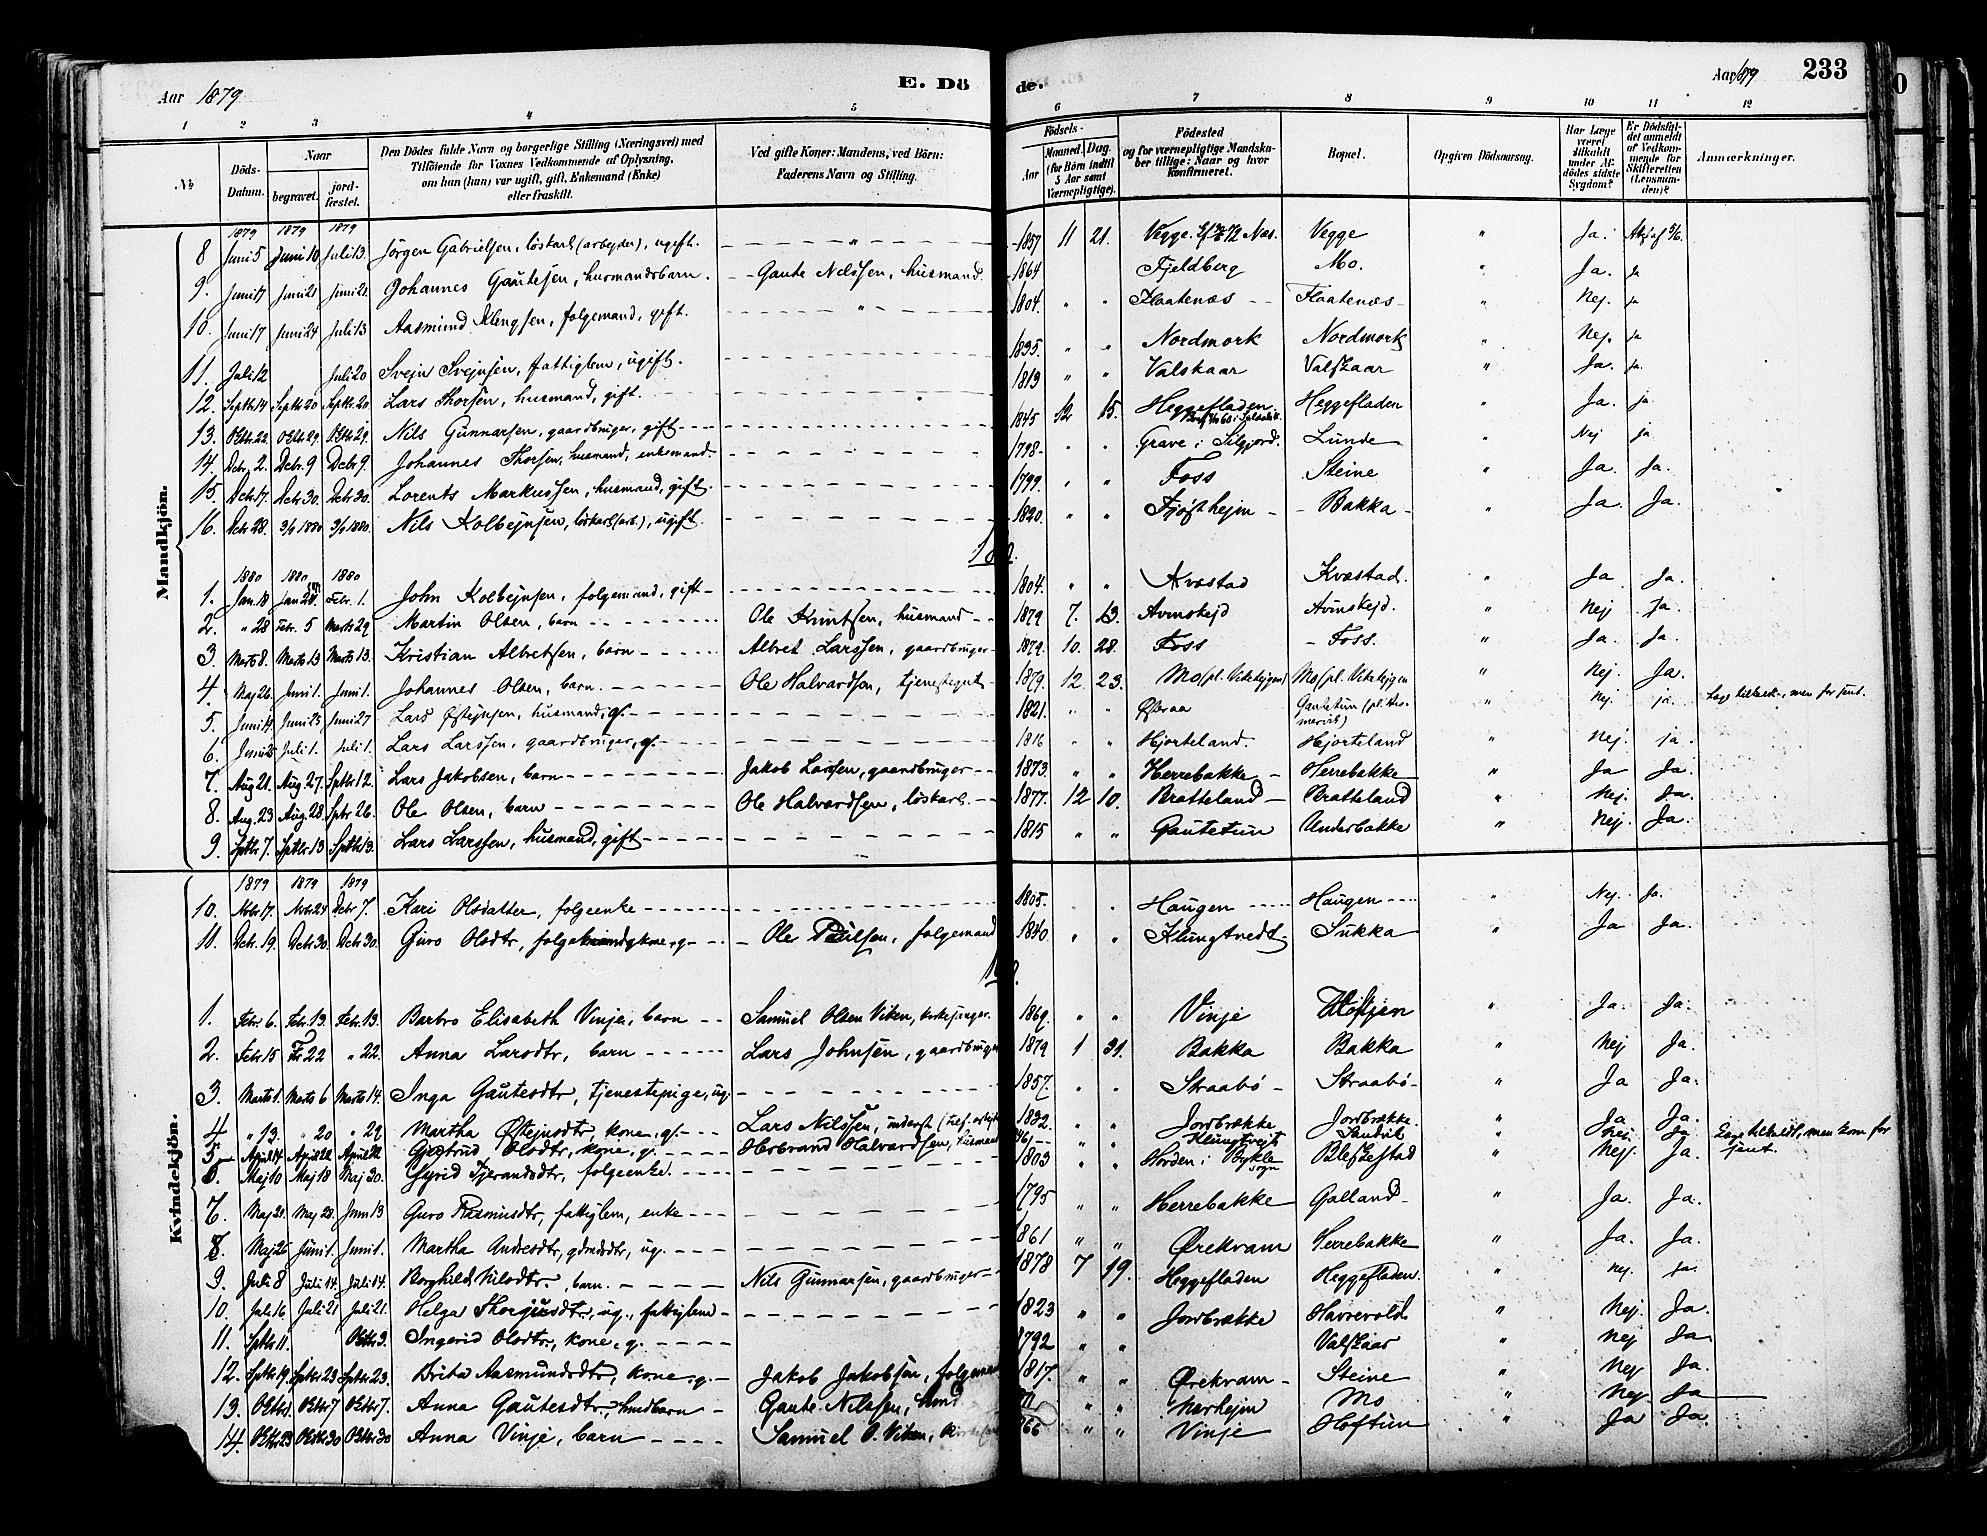 Aar 1879 E. Dö de. Aar 1879 233
1 2 3 4 5 6 7 8 9 10 11 12
№ Döds-Datum. Naar begravet. jord-fæstet. Den Dödes fulde Navn og borgerlige Stilling (Næringsvei) med Tilföiende for Voxnes Vedkommende af Oplysning, om han (hun) var ugift, gift, Enkemand (Enke) eller fraskilt. Ved gifte Koner: Mandens, ved Börn: Faderens Navn og Stilling. Födsels- Aar Maaned. Dag. (for Börn indtil 5 Aar samt Værnepligtige). Födested og for værnepligtige Mandskaber tillige: Naar og hvor konfirmeret. Bopæl. Opgiven Dödsaarsag. Har Læge været tilkaldt under Afdödes sidste Sygdom? Er Dödsfaldet anmeldt af Vedkommende for Skifteretten (Lensmanden)? Anmærkninger.
Mandkjön.
1879 1879 1879
8 Juni 5 Juni 10 Juli 13. Jörgen Gabrielsen, löskarl (arbejder), ugift. 1857 11 21. Vegge. Vegge " Ja.
9. Juni 17 Juni 21 Juni 21. Johannes Gautesen, husmandsbarn. Gaute Nilssen, husmand. 1864 Fjeldberg Mo. " Ja. Ja
10. Juni 17 Juni 24 Juli 13 Aasmund Klengsen, folgemand, gift. " 1804. " " Flaatenæs Flaatenæs " Nej. ja
11. Juli 12 Juli 20 Svejn Svejnsen, fattiglem, ugift. 1835. " " Nordmork Nordmork " Nej. ja
12. Septbr 14 Septbr 20 Septbr. 20 Lars Thorsen, husmand, gift. 1813 " " Valskaar Valskaar " Ja. ja.
13. Oktbr 22 Oktbr 29. Oktbr 29. Nils Gunnarsen, gaardbruger, gift 1845 12 15. Heggefladen Heggefladen " Ja. ja
14. Dcbr. 2. Dcbr. 9 Dcbr 9. Johannes Thorsen, husmand, enkemand. 1798 " " Grave i Silgjord. Lunde " Nej ja
15. Dcbr 17. Dcbr 30. Dcbr 30. Lorents Markussen, husmand, gift. 1799. " " Foss Steine " Ja. Ja.
16. Dcbr 28. 3/1 1880 3/1 1880. Nils Kolbejnsen, löskarl (arb.), ugift. 1820. " " Fjøsthejm Bakka " Ja. Ja.
1880 1880 1880
1. Jan. 18 Jan 28 Febr. 1. John Kolbejnsen, folgemand, gift 1804. " " Kvæstad Kvæstad. " Ja Ja.
2. " 28 Febr. 5 Marts 29 Martin Olsen, barn Ole Knutsen, husmand 1879 7. 13. Avinskejd Avinskejd. " Nej ja
3. Marts 8. Marts 13 Marts 13. Kristian Albretsen, barn Albret Larssen, gaardbruger 1879. 10. 28. Foss Foss. " Ja. Ja.
4. Maj 26. Juni 1. Juni 1. Johannes Olsen, barn. Ole Halvardsen, tjenestegut 1879. 12. 23. Mo (pl. Vikebygen) Mo (pl. Vikebygen " Nej. Ja.
5. Juni 14 Juni 25 Juni 27 Lars Østejnsen, husmand, g. 1821. " " Østeraa Gautetun " Nej. ja. Læge tilkaldt, men for sent.
6. Juni 25 Juli 1. Juli 1. Lars Larssen, gaardbruger, g. 1816 " " Hjorteland. Hjorteland " Nej. ja.
7. Aug 21. Aug 27. Sptbr 12. Lars Jakobsen, barn Jakob Larssen, gaardbruger 1873. " " Herrebakke Herrebakke " Ja Ja.
8. Aug. 23 Aug. 28. Sptbr 26. Ole Olsen, barn Ole Halvardsen, löskarl. 1877. 12 10. Bratteland Bratteland " Nej. Ja.
9. Sptbr 7. Sptbr 13 Sptbr 13. Lars Larssen, husmand, gift 1815 " " Gautetun Underbakke " Nej Ja.
Kvindekjön.
1879 1879 1879
10. Nvbr 17. Nvbr 24 Dcbr 7. Kari Olsdatter, folgeenke 1805. " " Haugen Haugen " Nej. Ja.
11. Dcbr. 19. Dcbr 30. Dcbr 30. Guro Olsdtr, folgemandskone, g. Ole Paulsen, folgemand 1840. " " Klungtvedt Sukka " Ja Ja.
1. Febr. 6. Febr. 13. Febr. 13. Barbro Elisabeth Vinje, barn Samuel Olsen Viken, kirkesanger 1869. " " Vinje " Ja. Ja.
2. Febr. 15 Fr 22 " 22. Anna Larsdtr, barn Lars Johnsen, gaardbruger 1879 1 31. Bakka Bakka " Nej Ja.
3. Marts 1. Marts 6 Marts 14. Inga Gautesdtr, tjenestepige, ug. 1857. " " Straabö Straabö " Ja Ja.
4 " 13. " 20 " 29 Martha Østejnsdtr, kone, g. Lars Nilssen, inderst 1832. " " Jordbrække Jordbrække. " Ja Ja.
5. April 14 April 22 April 22 Gjertrud Olsdtr, kone, g. Herbrand Halvardsen, husmand Klungtvejt Sandvik " Nej. Ja Læge tilkaldt, men kom for sent.
6. Maj 10 Maj 18 Maj 30. Gyrid Tjerandsdtr, folgeenke. 1803 " " Horden i Bykle Sogn Blefkestad " Nej. Ja.
7. Maj 21. Maj 23. Juni 13 Guro Rasmusdtr, fattiglem, enke 1795 " " Herrebakke Galland " Ja. Ja.
8. Maj 26 Juni 1. Juni 1. Martha Andresdtr, gdmdsdtr, ug. 1861 " " Ørekvam Herrebakke " Ja. Ja.
9. Juli 8 Juli 14. Juli 14. Borghild Nilsdtr. barn. Nils Gunnarsen, gaardbruger 1878 7 19. Heggefladen Heggefladen. " Nej. ja.
10. Juli 16 Juli 21 Juli 21. Helga Thorgjusdtr, ug., fattiglem 1823 " " Jordbrække Havrevold " Nej. Ja.
11. Sptbr 11. Oktbr 3. Ingerid Olsdtr, kone, g. 1792 " " Valskaar " Nej Ja
12. Sptbr 19. Sptbr 23 Sptbr 23. Brita Aasmundsdtr, kone, g. Jakob Jakobsen, folgemand 1817. " " Ørekvam Steine " Nej Ja.
13. Oktbr 1. Oktbr 7 Oktbr 7. Anna Gautesdtr, husmdbarn Gaute Nilssen, husmd " " Nærhejm Mo " Nej. Ja
14. Oktbr 23 Oktbr 30 Oktbr 30 Anna Vinje, barn Samuel O. Viken, 1866 " " Vinje Hoftun " Ja Ja.